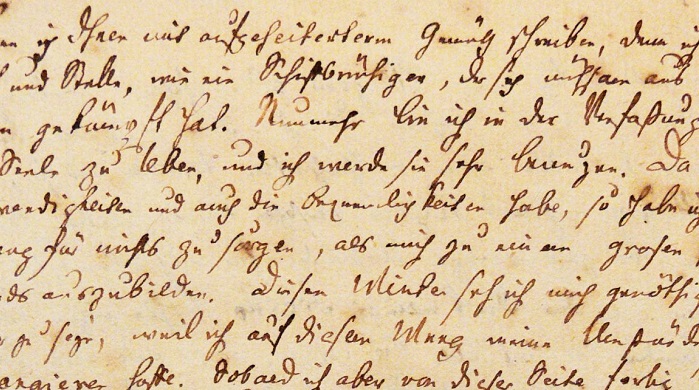 ich Ihnen mit aufgeheitertem Gemüth schreiben, denn ich
und Stelle, wie ein Schiffbrüchiger, der sich mühsam aus
gekämpft hat. Nunmehr bin ich in der Verfaßung
Seele zu leben, und ich werde sie sehr benuzen. Da
wendigkeiten und auch die Bequemlichkeiten habe, so habe ich
ang für nichts zu sorgen, als mich zu einem grosen
ds auszubilden. Diesen Winter seh ich mich genöthi
zu seyn, weil ich auf diesem Weeg meine Umstände
rangieren hoffe. Sobald ich aber von dieser Seite fertig